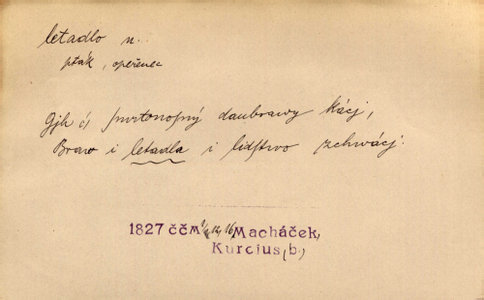 letadlo n.
pták, opeřenec
Gjk čj smrtonosný daubrawy kácj,
Braw i letadla i lidstwo zchwácj.
1827 ččM 1/4, 12, 16, Macháček,
Kurcius (b.)